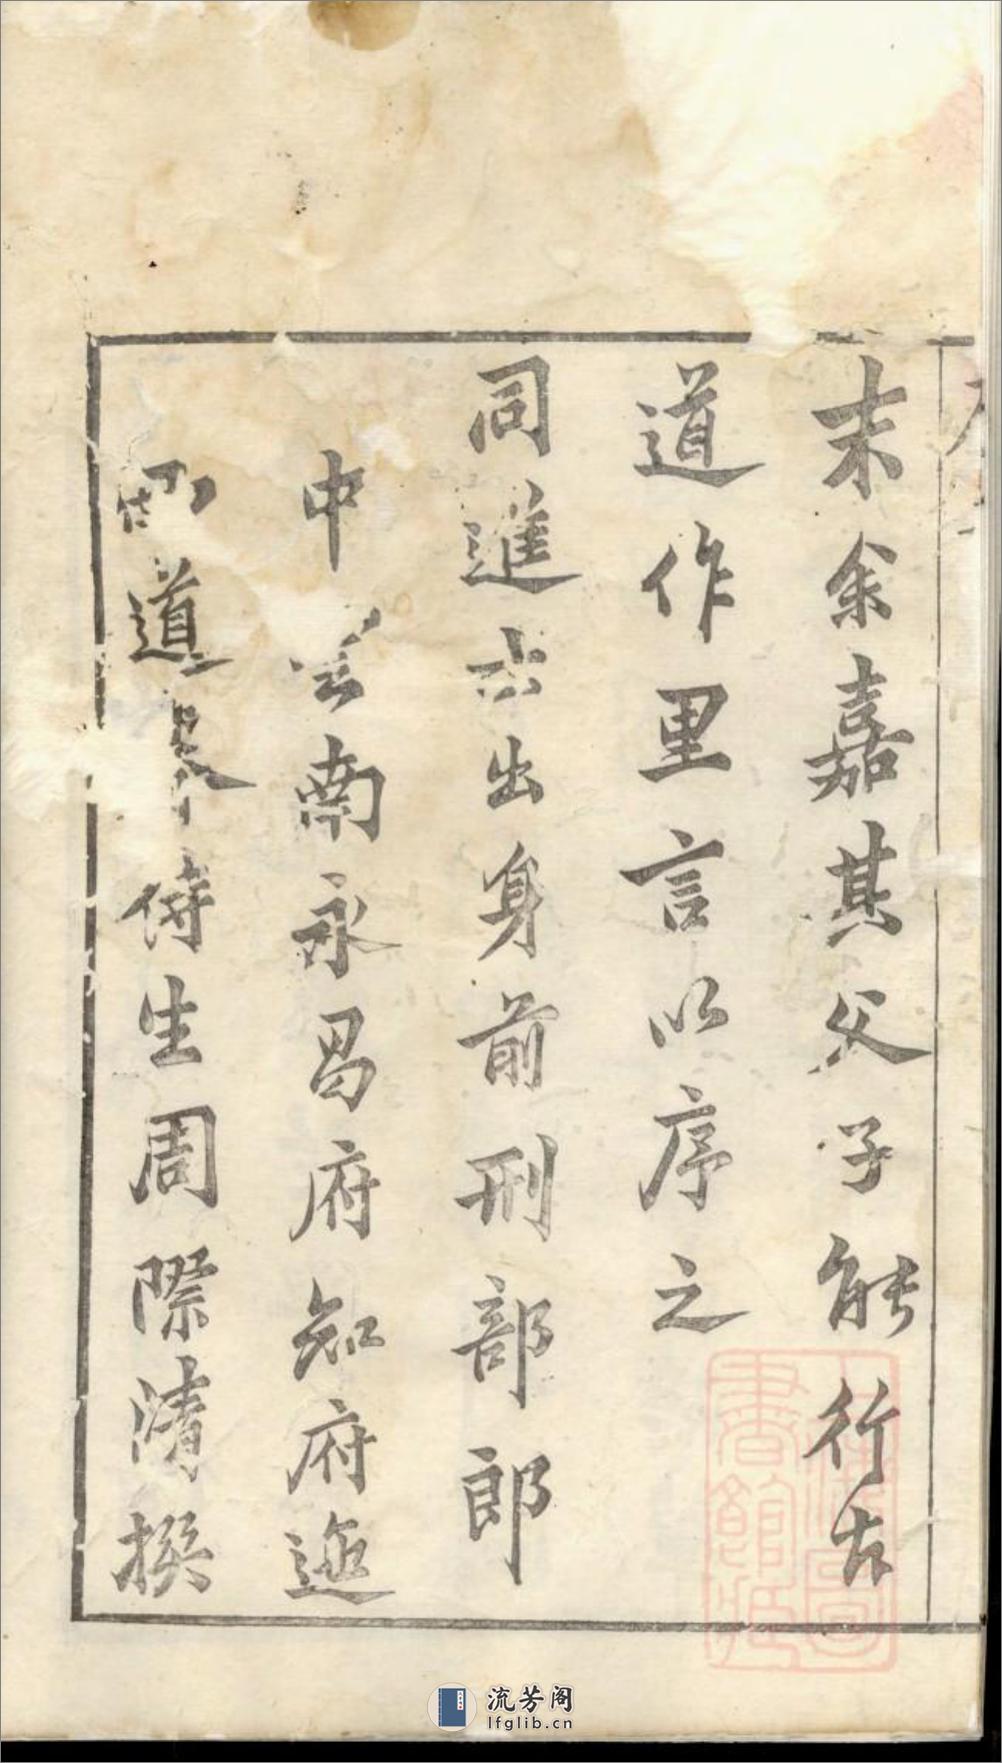 末余嘉其父子能行古
道作里言以序之
同進士出身前刑部郎
中雲南永昌府知府迤
西道眷侍生周際清撰
流芳阁
lfglib.cn